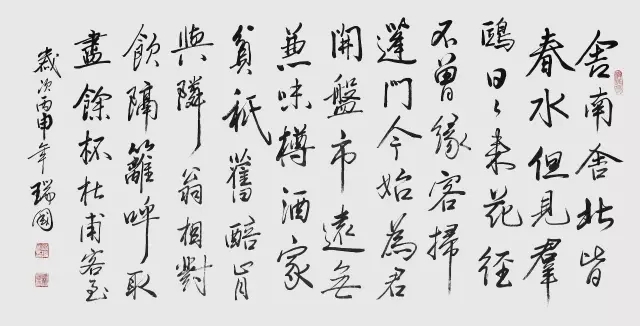 舍南舍北皆
春水但見羣
鷗日々來花徑
不曾緣客掃
蓬門今始為君
開盤市遠無
兼味樽酒家
貧祇舊醅肯
與隣翁相對
飲隔籬呼取
盡餘杯杜甫客至
歲次丙申年瑞國